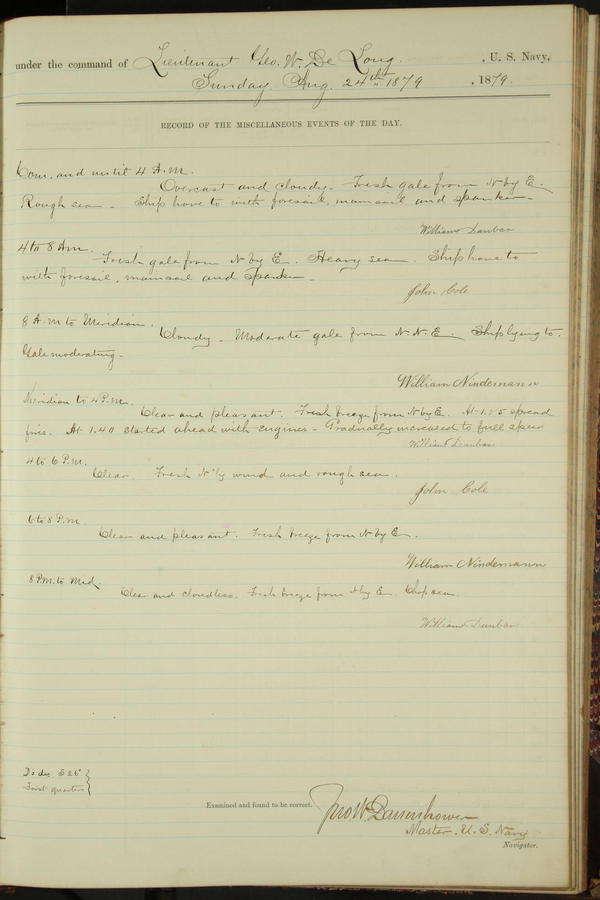 under the command of Lieutenant Geo. W. De Long. , U. S. Navy,
Sunday Aug. 24th 1879 , 1879.
RECORD OF THE MISCELLANEOUS EVENTS OF THE DAY.
Com. and until 4 A.M.
Overcast and cloudy. Fresh gale from N by E.
Rough sea. Ship hove to with foresail, mainsail and spanker.
William Dunbar
4 to 8 A.m.
Fresh gale from N by E. Heavy sea. Ship hove to
with foresail, mainsail and spanker.
John Cole
8 A.m to Meridian.
Cloudy. Moderate gale from N.N.E. Ship lying to.
Gale moderating.
William Nindemann
Meridian to 4 P.m.
Clear and pleasant. Fresh breeze from N by E. At 1.05 spread
fires. At 1.40 started ahead with engines. Gradually increased to full speed
William Dunbar
4 to 6 P.M.
Clear. Fresh N'ly wind and rough sea.
John Cole
6 to 8 P.m.
Clear and pleasant. Fresh breeze from N by E.
William Nindemann
8 P.m. to Mid.
Clear and cloudless. Fresh breeze from N by E. Chop sea.
William Dunbar
First quarter
Examined and found to be correct.
Jno W. Danenhower
Master. U. S. Navy
Navigator.